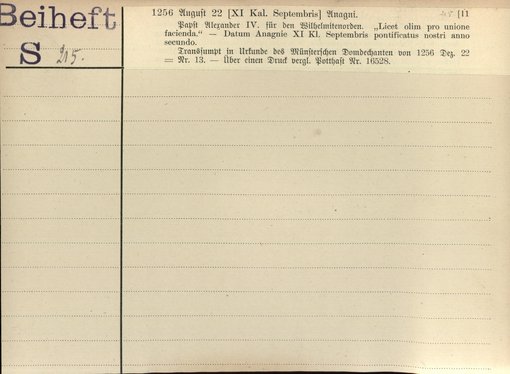 Beiheft
S 215.
1256 August 22 [XI Kal. Septembris] Anagni. [11
Papst Alexander IV. für den Wilhelmitenorden. „Licet olim pro unione
facienda.“ — Datum Anagnie XI Kl. Septembris pontificatus nostri anno
secundo.
Transsumpt in Urkunde des Münsterschen Domdechanten von 1256 Dez. 22
= Nr. 13. — Über einen Druck vergl. Potthast Nr. 16528.